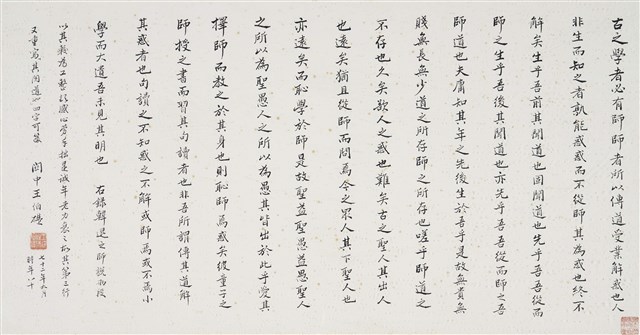 古之學者必有師師者所以傳道受業解惑也人
非生而知之者孰能惑惑而不從師其為惑也終不
解矣生乎吾前其聞道也固聞道也先乎吾吾從而
師之生乎吾後其聞道也亦先乎吾吾從而師之吾
師道也夫庸知其年之先後生於吾乎是故無貴無
賤無長無少道之所存師之所存也嗟乎師道之
不存也久矣欲人之惑也難矣古之聖人其出人
也遠矣猶且從師而問焉今之眾人其下聖人也
亦遠矣而恥學於師是故聖益聖愚益愚聖人
之所以為聖愚人之所以為愚其皆出於此乎愛其
擇師而教之於其身也則恥師焉惑矣彼童子之
師授之書而習其句讀者也非吾所謂傳其道解
其惑者也句讀之不知惑之不解或師焉或不焉小
學而大遺吾未見其明也 右錄韓退之師說初段
其第三行
又重寫其聞道也四字可笑 閩中王伯
七十二年九月
時年八十